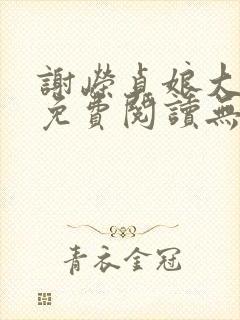 謝嶸貞娘大
免費閱讀無
青衣金冠